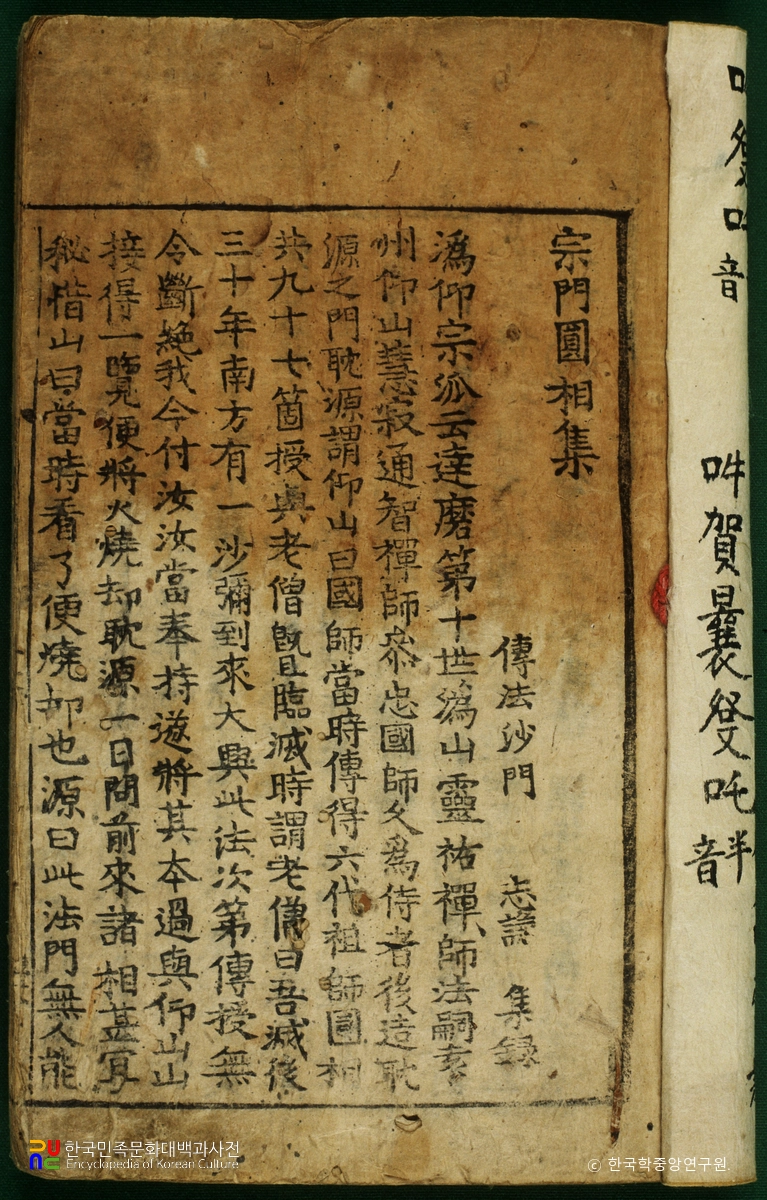 宗門圓相集
傳法沙門 志謙 集録
潙仰宗派云達磨第十世潙山靈祐禪師法嗣袁
州仰山慧寂通智禪師叅忠國師久爲侍者後造耽
源之門耽源謂仰山曰國師當時傳得六代祖師圓相
共九十七箇授與老僧旣臨滅時謂老僧曰吾滅後
三十年南方有一沙彌到來大興此法次第傳授無
令斷絶我今付汝汝當奉持遂將其本過與仰山山
接得一覽便將火燒却耽源一日問前來諸相甚冝
秘惜山曰當時看了便燒却也源曰此法門無人能
音
吽賀曩癹吒
半音
한국민족문화대백과사전
Encyclopedia of Korean Culture
© 한국학중앙연구원.